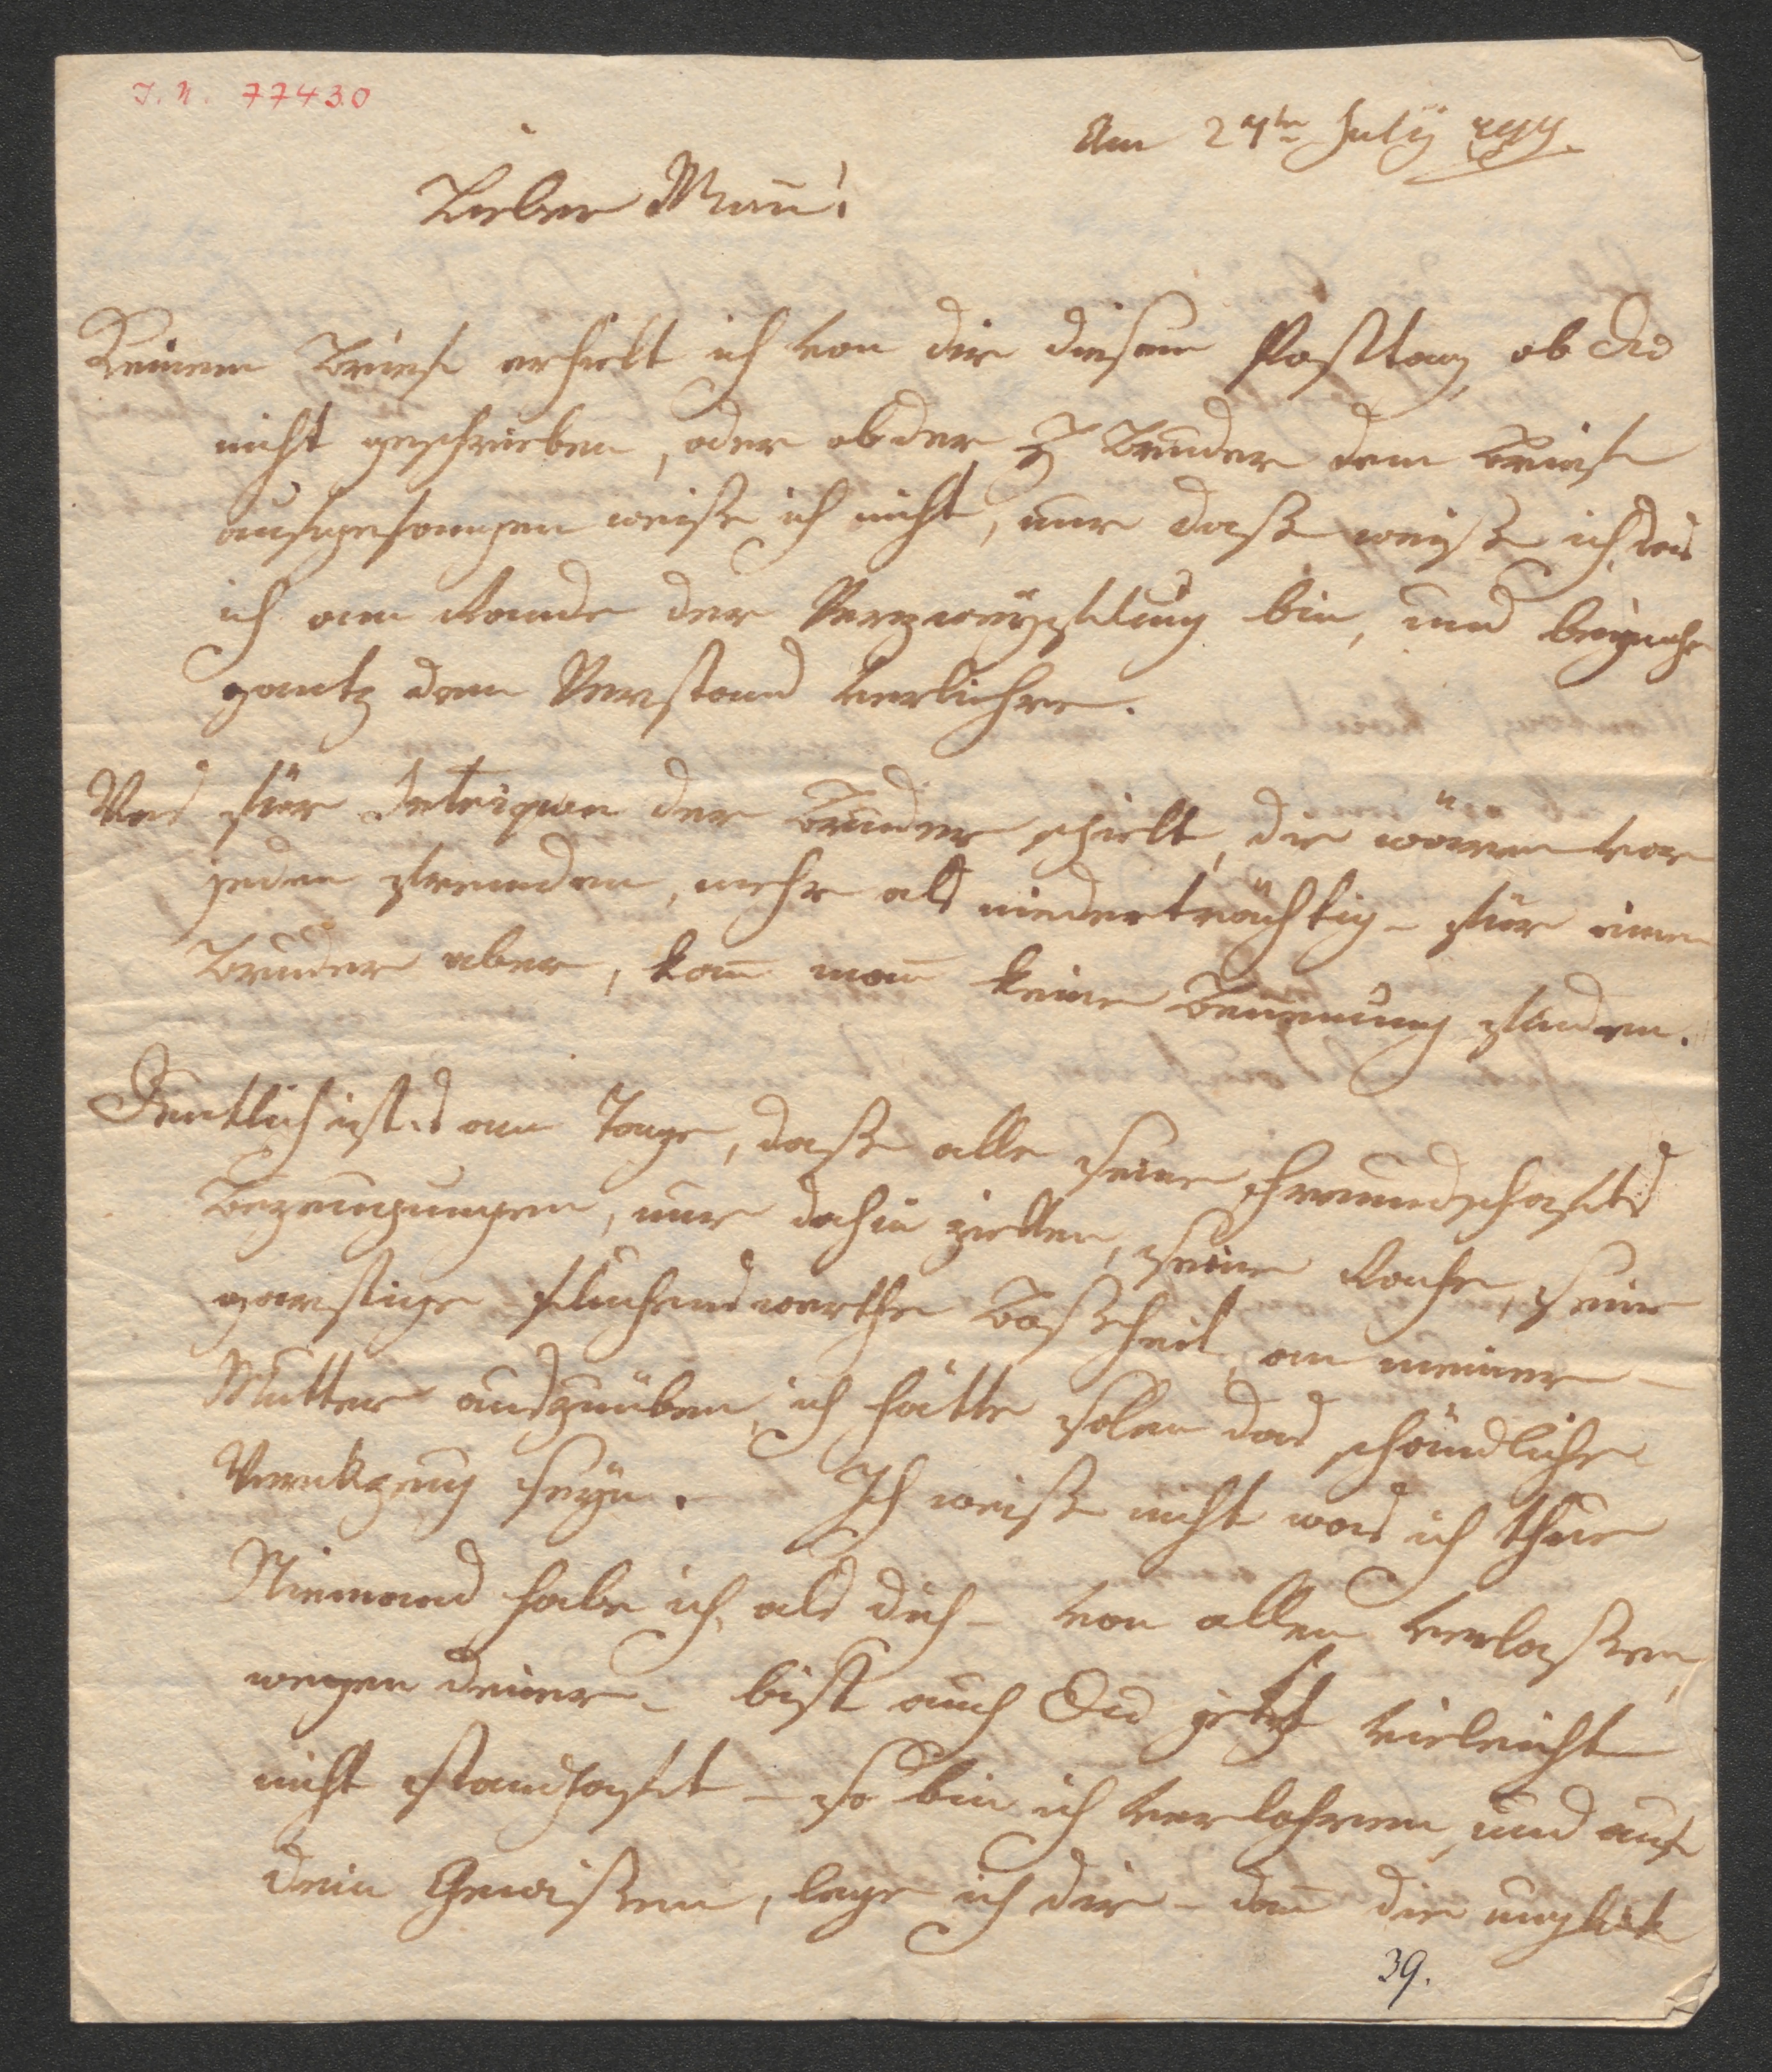 I. N. 77430
Am 24ten July
Lieber Mañ!
Keinen Brief erhielt ich von dir diesem Posttag, ob Du
nicht geschrieben, oder ob der H Bruder dem Brief
aufgefangen weiß ich nicht, nur daß weyß ich, das
ich am Rande der Verzweyflung bin, und beynahe
gantz den Verstand verliehre.
Was für Intriquen der Bruder spielt, die wären von
jeden fremden, mehr als niederträchtig - für einen
Bruder aber, kañ mañ keine Benenung finden.
Deutlich ist es am Tage, daß alle seine Freundschafts
Bezeugungen, nur dahin zielten, seine Rache, seine
garstige fluchenswerthe Boßheit, an meiner
Mutter auszuüben, ich hätte solen das schändliche
Werkzeug seyn. Ich weiß nicht was ich thue
Niemand habe ich, als dich - von allen verlaßen,
wegen deiner - bist auch Du jetzt vieleicht
nicht standhaft - so bin ich verlohren, und auf
dein Gewißen, lege ich dir - dañ die unglük
39.